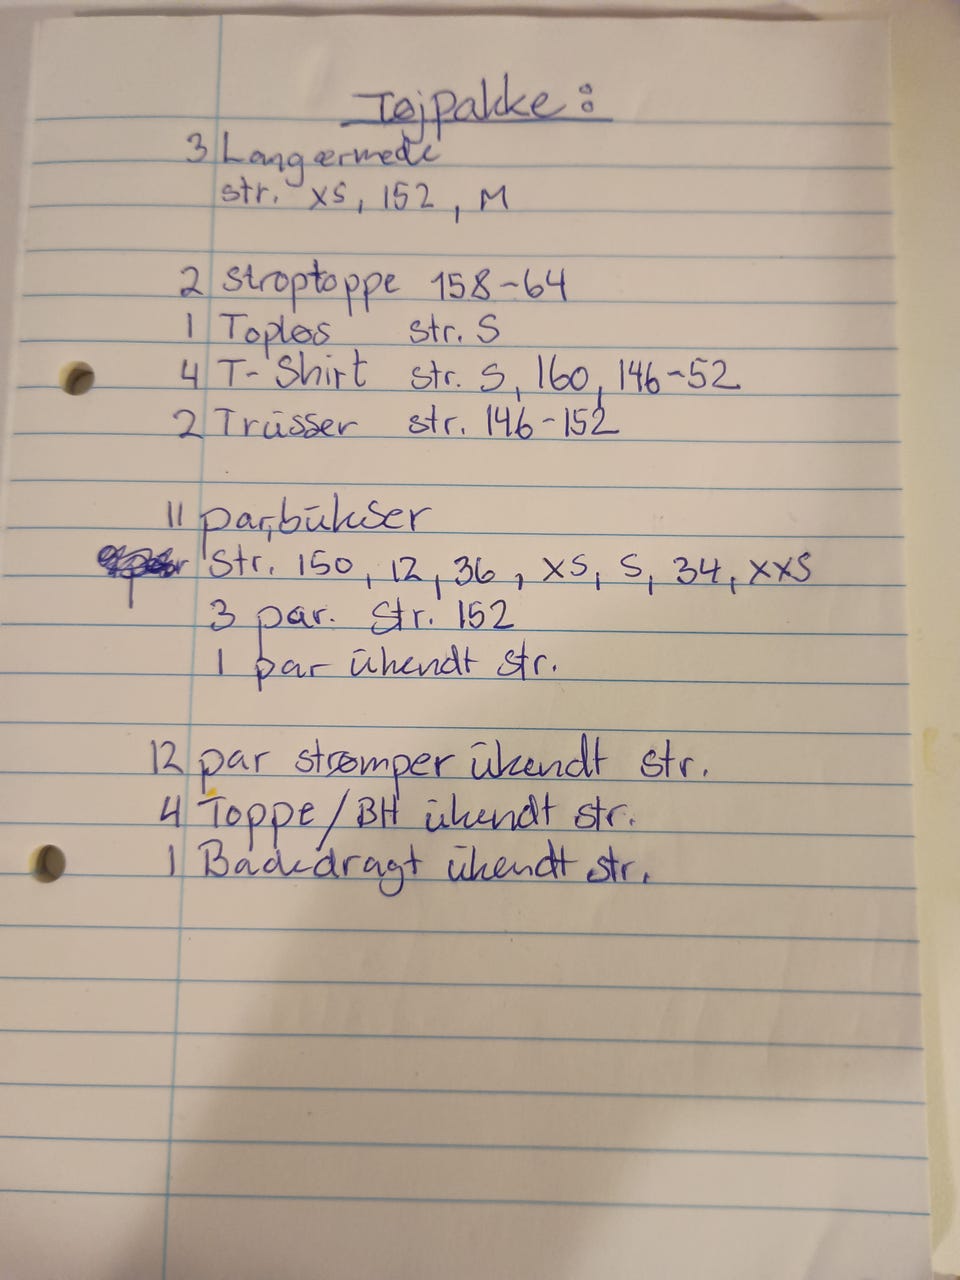 Tøjpakke:
3 Langærmede
str. XS, 152, M
2 Stroptoppe 158-64
1 Topløs str. S
4 T-Shirt str. S, 160, 146-52
2 Trüsser str. 146-152
11 par bükser
str. 150, 12, 36, XS, S, 34, XXS
3 par. Str. 152
1 par ükendt str.
12 par strømper ükendt str.
4 Toppe/BH ükendt str.
1 Badedragt ükendt str.